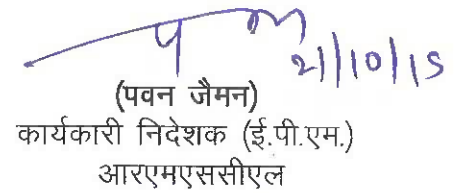 21/10/15
(पवन जैमन)
कार्यकारी निदेशक (ई.पी.एम.)
आरएमएससीएल